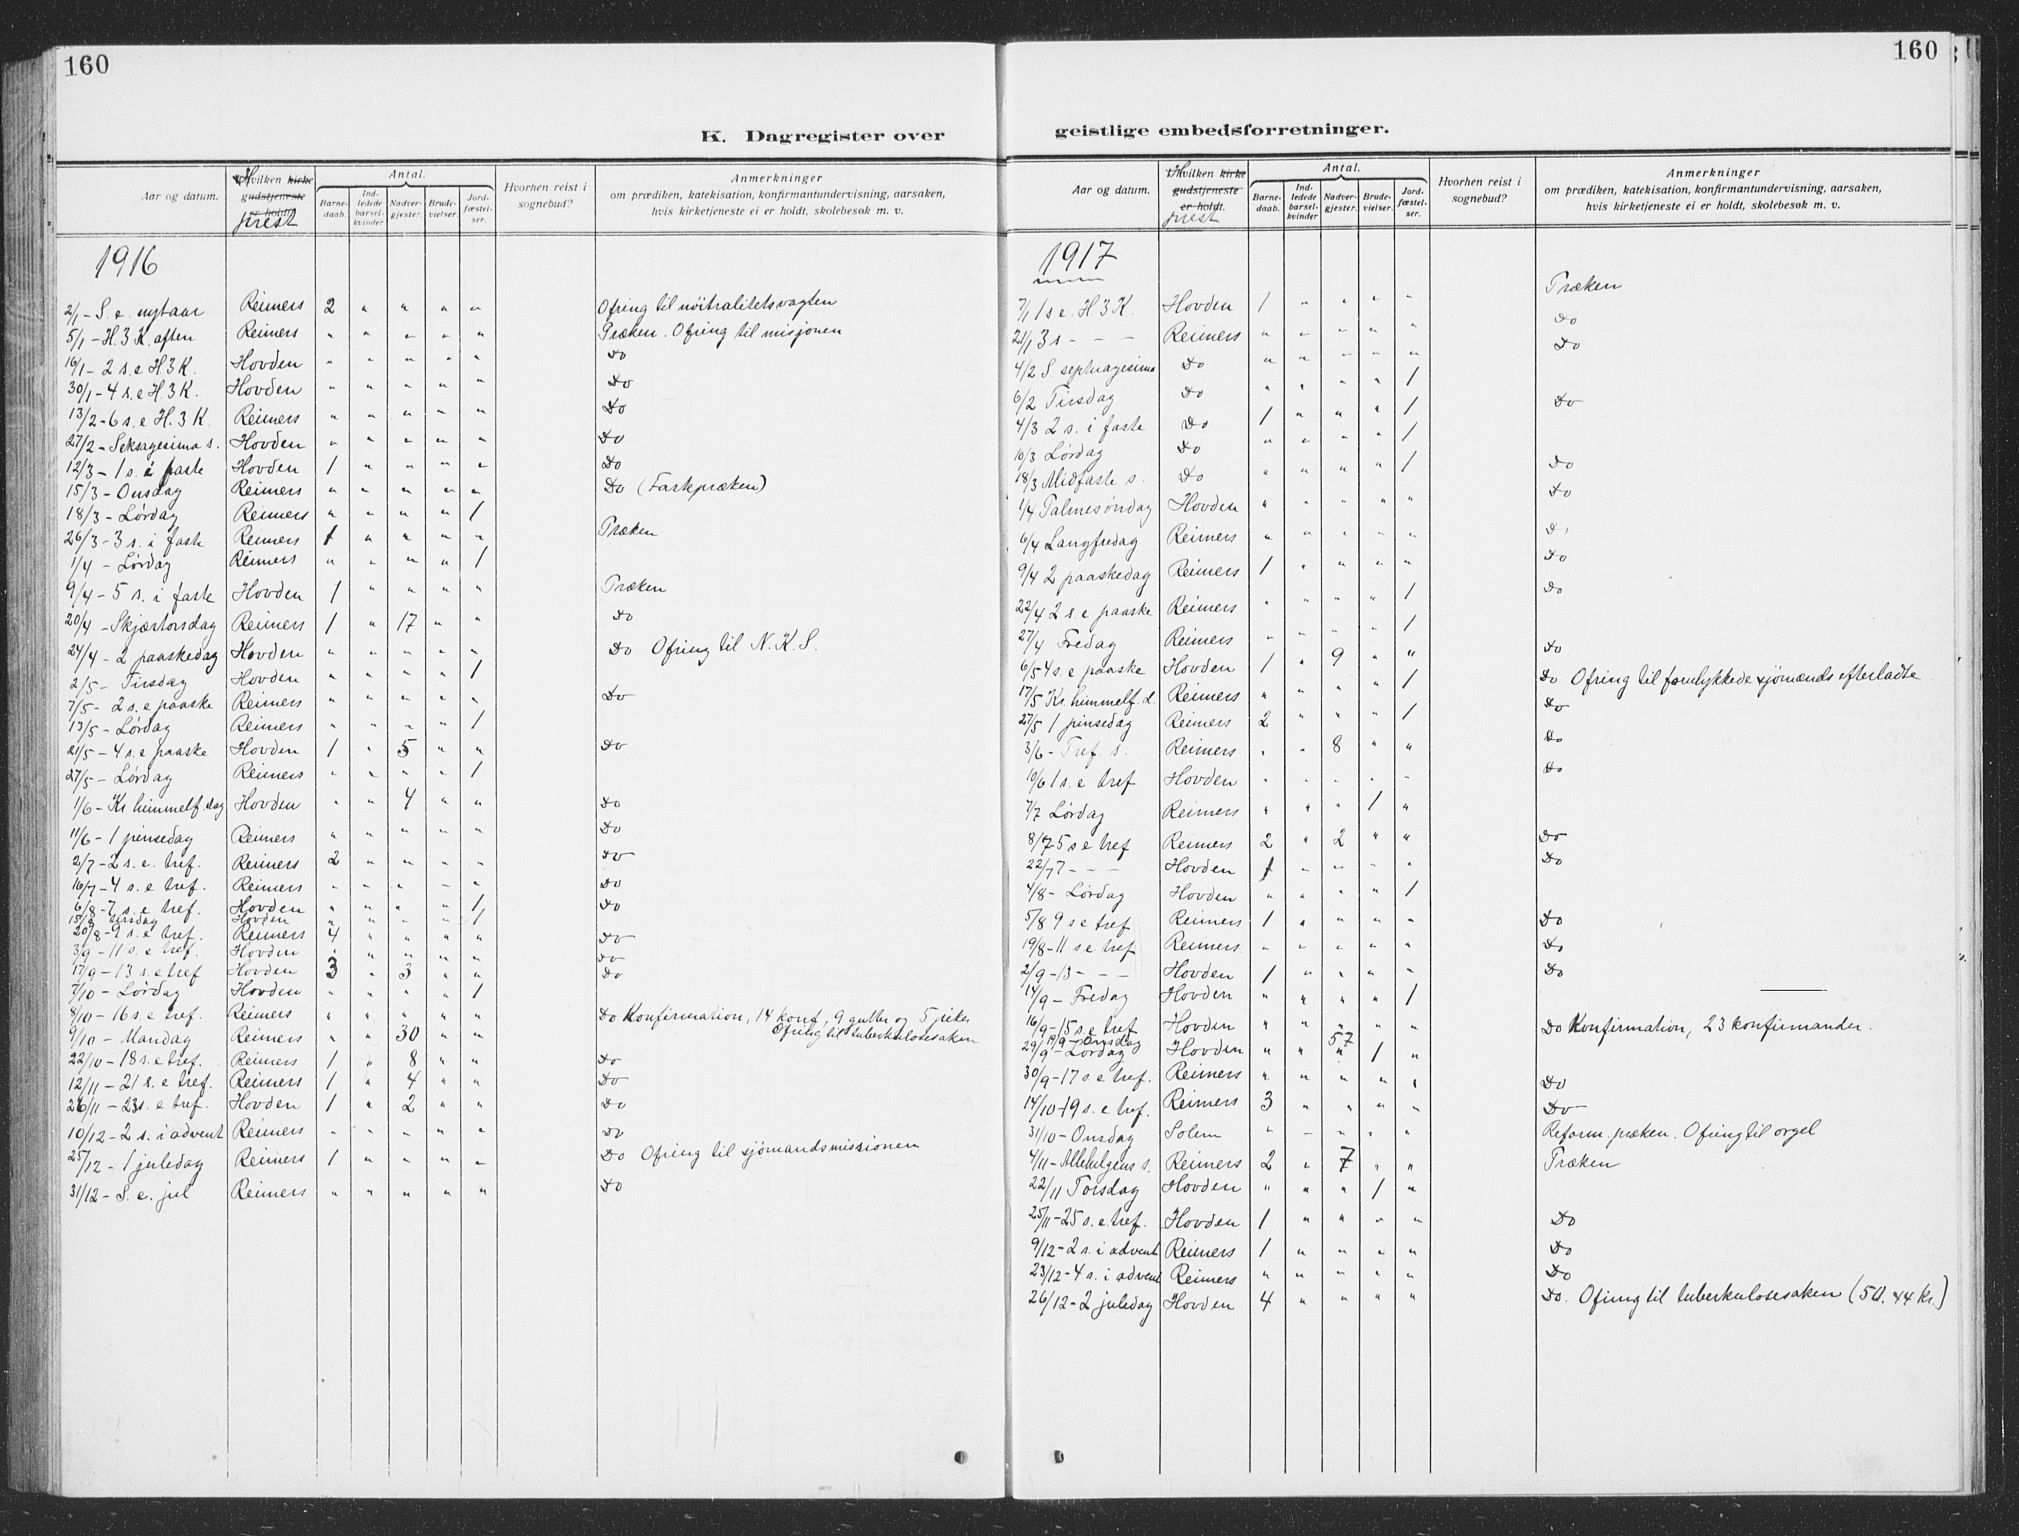 160
K. Dagregister over
Aar og datum.
Hvilken kirke gudstjeneste er holdt.
prest
Antal.
Barnedaab.
Indledede barselkvinder
Nadvergjester.
Brudevielser.
Jordfæstelser.
Hvorhen reist i sognebud?
Anmerkninger
om prædiken, katekisation, konfirmantundervisning, aarsaken,
hvis kirketjeneste ei er holdt, skolebesøk m. v.
1916
2/1 - S. e. nytaar Reimers 2 " " " " Ofring til nöitralitetsvagten
5/1 - H. 3 K. aften Reimers " " " " " Præken. Ofring til misjonen
16/1 - 2 s. e H 3 K. Hovden " " " " " Do
30/1 - 4 s. e H. 3 K. Hovden " " " " " Do
13/2 - 6 s. e H. 3 K Reimers " " " " " Do
27/2 - Seksagesima s. Hovden " " " " " Do
12/3 - 1 s. i faste Hovden 1 " " " " Do
15/3 - Onsdag Reimers " " " " " Do (Fastepræken)
18/3 - Lördag Reimers " " " " 1
26/3 - 3 s. i faste Reimers 1 " " " " Præken
1/4 - Lördag Reimers " " " " 1
9/4 - 5 s. i faste Hovden 1 " " " " Præken
20/4 - Skjærtorsdag Reimers 1 " 17 " " Do
24/4 - 2 paaskedag Hovden " " " " " Do Ofring til N. K. S.
2/5 - Tirsdag Hovden " " " " 1
7/5 - 2 s. e paaske Reimers " " " " " Do
13/5 - Lördag Reimers " " " " 1
21/5 - 4 s. e paaske Hovden 1 " 5 " " Do
27/5 - Lördag Reimers " " " " 1
1/6 - Kr. himmelf. dag Hovden " " 4 " " Do
11/6 - 1 pinsedag Reimers " " " " " Do
2/7 - 2 s. e. tref. Reimers 2 " " " " Do
16/7 - 4 s. e tref. Reimers " " " " " Do
6/8 - 7 s. e tref. Hovden " " " " 1 Do
15/8 tirsdag Hovden " " " " 1
20/8 - 9 s. e tref. Reimers 4 " " " " Do
3/9 - 11 s. e tref. Hovden " " " " " Do
17/9 - 13 s. e tref Hovden 3 " 3 " " Do
7/10 - Lördag Hovden " " " " 1
8/10 - 16 s. e tref. Reimers " " " " " Do Konfirmation, 14 konf., 9 gutter og 5 piker
9/10 - Mandag Reimers " " 30 " " Ofring til tuberkulosesaken
22/10 - 18 s. e tref. Reimers 1 " 8 " " Do
12/11 - 21 s. e tref. Reimers 1 " 4 " " Do
26/11 - 23 s. e tref. Hovden 1 " 2 " " Do
10/12 - 2 s. i advent Reimers " " " " " Do
25/12 - 1 juledag Reimers 1 " " " " Do Ofring til sjömandsmissionen
31/12 - S. e. jul Reimers " " " " " Do
160
geistlige embedsforretninger.
Aar og datum.
Hvilken kirke gudstjeneste er holdt.
prest
Antal.
Barnedaab.
Indledede barselkvinder
Nadvergjester.
Brudevielser.
Jordfæstelser.
Hvorhen reist i sognebud?
Anmerkninger
om prædiken, katekisation, konfirmantundervisning, aarsaken,
hvis kirketjeneste ei er holdt, skolebesøk m. v.
1917
7/1 1 s e. H. 3 K. Hovden 1 " " " " Præken
21/1 3 s - - - Reimers " " " " " Do
4/2 S. septuagesima Do " " " " " Do
6/2 Tirsdag Do " " " " 1
4/3 2 s. i faste Do 1 " " " 1 Do
10/3 Lördag Do " " " " 1
18/3 Midfaste s. Do " " " " 1 Do
1/4 Palmesöndag Hovden " " " " " Do
6/4 Langfredag Reimers " " " " " Do
9/4 2 paaskedag Reimers 1 " " " " Do
22/4 2 s. e paaske Reimers " " " " 1 Do
27/4 Fredag Reimers " " " " 1
6/5 4 s. e paaske Hovden 1 " 9 " " Do
17/5 Kr. himmelf. d. Reimers " " " " 1 Do Ofring til forulykkede sjömænds efterladte
27/5 1 pinsedag Reimers 2 " " " 1 Do
3/6 - Tref. s. Reimers " " 8 " " Do
10/6 1 s. e tref Hovden " " " " " Do
7/7 Lördag Reimers " " " 1 "
8/7 - 5 s e tref Reimers 2 " 2 " " Do
22/7 7 - - - Hovden 1 " " " " Do
4/8 - Lördag Hovden " " " " 1
5/8 9 s e tref Reimers 1 " " " " Do
19/8 - 11 s e tref Reimers " " " " " Do
2/9 - 13 - - - Hovden 1 " " " " Do
14/9 - Fredag Hovden " " " " 1
16/9 - 15 s. e tref Hovden " " " " " Do Konfirmation, 23 konfirmander.
19/9 - Onsdag 57
29/9 - Lördag Hovden " " " 1 "
30/9 - 17 s. e tref. Reimers " " " " " Do
14/10 - 19 s. e tref. Reimers 3 " " " " Do
31/10 - Onsdag Solem " " " " " Reform. præken. Ofring til orgel
4/11 - Allehelgens s. Reimers 2 " 7 " " Præken
22/11 Torsdag Hovden " " " 1 "
25/11 - 25 s. e. tref. Hovden 1 " " " " Do
9/12 - 2 s. i advent Reimers 1 " " " " Do
23/12 - 4 s. i advent Reimers " " " " " Do
26/12 - 2 juledag Hovden 4 " " " " Do. Ofring til tuberkulosesaken (50.44 kr.)